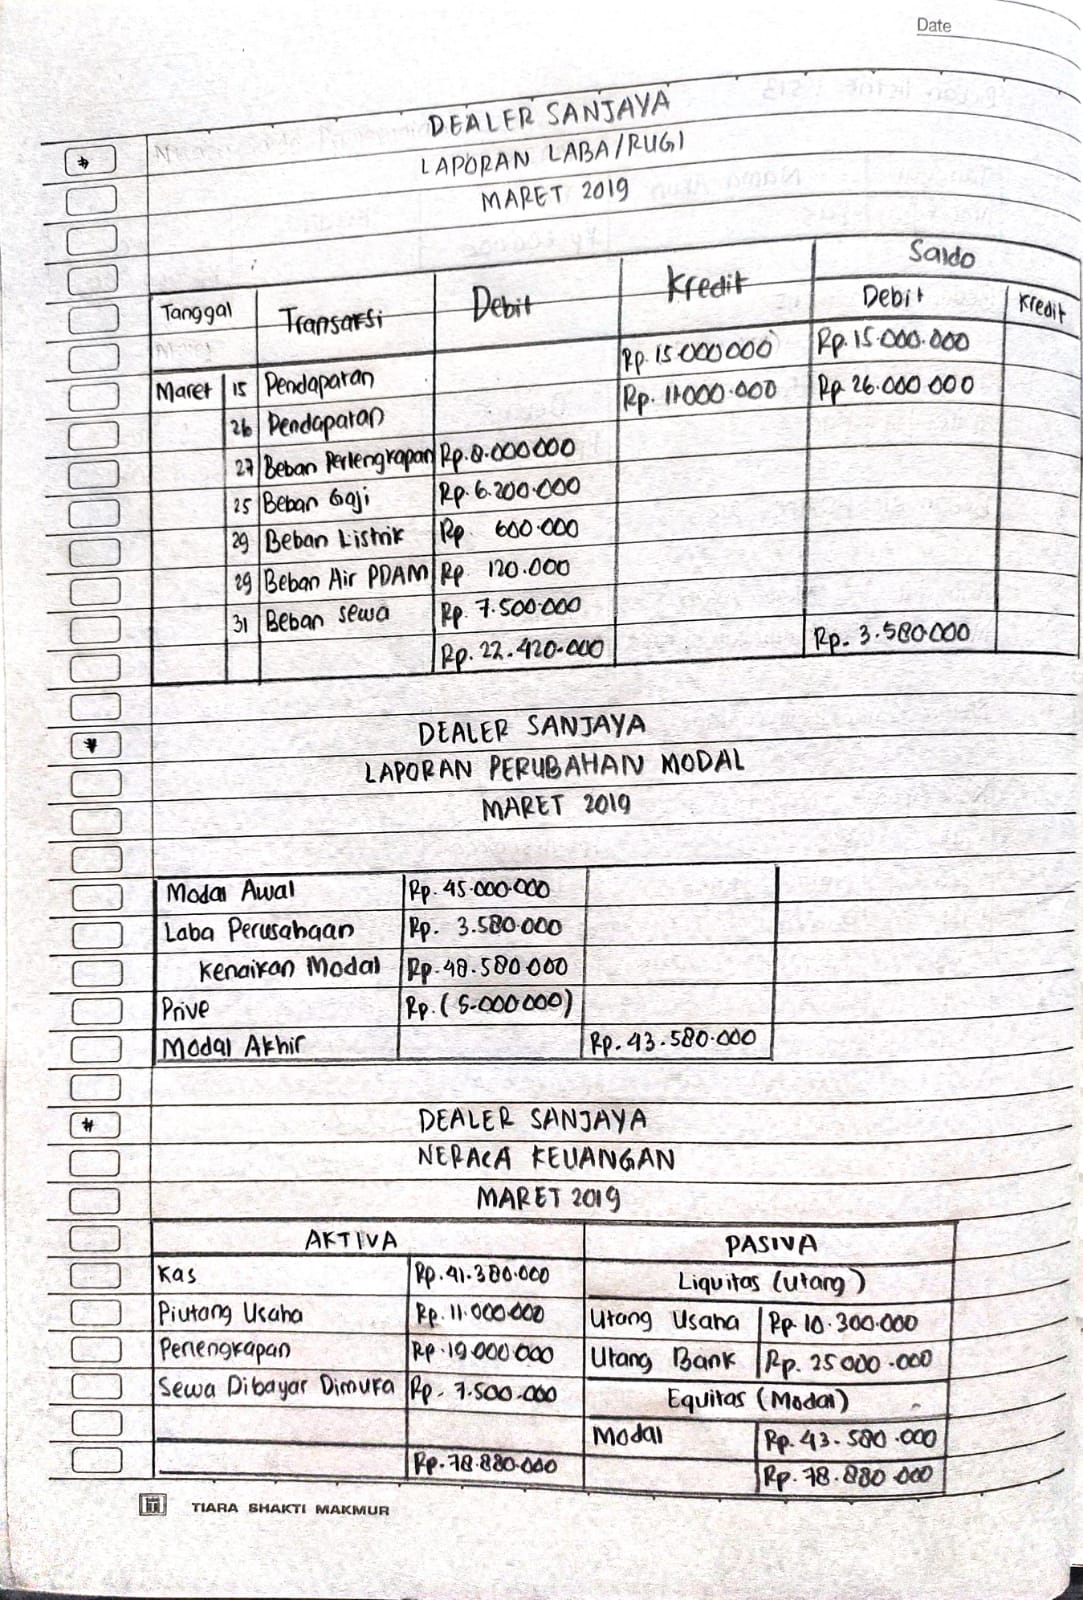 Date
DEALER SANJAYA
LAPORAN LABA/RUGI
MARET 2019
Tanggal Transaksi Debit Kredit Saldo
Debit Kredit
Maret 15 Pendapatan Rp. 15.000000 Rp. 15.000.000
26 Pendapatan Rp. 11.000.000 Rp. 26.000.000
27 Beban Perlengkapan Rp. 8.000000
25 Beban Gaji Rp. 6.200.000
29 Beban Listrik Rp. 600.000
29 Beban Air PDAM Rp 120.000
31 Beban Sewa Rp. 7.500.000
Rp. 22.420.000 Rp. 3.580.000
DEALER SANJAYA
LAPORAN PERUBAHAN MODAL
MARET 2019
Modal Awal Rp. 45.000.000
Laba Perusahaan Rp. 3.580.000
Kenaikan Modal Rp. 48.580.000
Prive Rp. (5.000000)
Modal Akhir Rp. 43.580.000
DEALER SANJAYA
NERACA KEUANGAN
MARET 2019
AKTIVA PASIVA
Kas Rp. 41.380.000 Liquitas (utang)
Piutang Usaha Rp. 11.000.000 Utang Usaha Rp. 10.300.000
Perlengkapan Rp. 19.000.000 Utang Bank Rp. 25.000.000
Sewa Dibayar Dimuka Rp. 7.500.000 Equitas (Modal)
Modal Rp. 43.580.000
Rp. 78.880.000 Rp. 78.880.000
TIARA SHAKTI MAKMUR